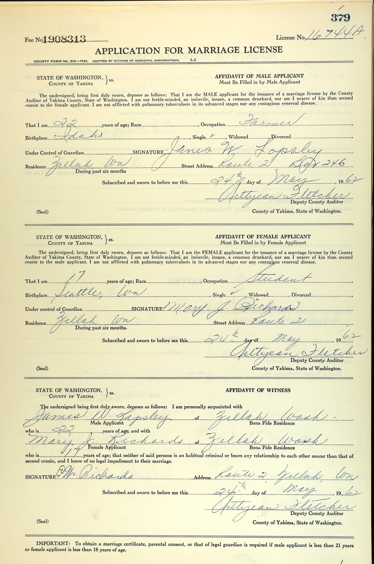 379
Fee No. 1908313 License No. 16744A
APPLICATION FOR MARRIAGE LICENSE
STATE OF WASHINGTON, } ss. AFFIDAVIT OF MALE APPLICANT
COUNTY OF YAKIMA Must Be Filled in by Male Applicant
The undersigned, being first duly sworn, deposes as follows: That I am the MALE applicant for the issuance of a marriage license by the County
Auditor of Yakima County, State of Washington. I am not feeble-minded, an imbecile, insane, a common drunkard, nor am I nearer of kin than second
cousin to the female applicant. I am not afflicted with pulmonary tuberculosis in its advanced stages nor any contagious venereal disease.
That I am 22 years of age; Race Occupation Farmer
Birthplace Idaho , Single , Widowed , Divorced
Under Control of Guardian SIGNATURE James W Lapsley
Residence Zillah Wn Street Address Route 2 Box 246
During past six months
Subscribed and sworn to before me this 24th day of May , 1962
Arttyean Fletcher
Deputy County Auditor
(Seal) County of Yakima, State of Washington.
STATE OF WASHINGTON, } ss. AFFIDAVIT OF FEMALE APPLICANT
COUNTY OF YAKIMA Must Be Filled in by Female Applicant
The undersigned, being first duly sworn, deposes as follows: That I am the FEMALE applicant for the issuance of a marriage license by the County
Auditor of Yakima County, State of Washington. I am not feeble-minded, an imbecile, insane, a common drunkard, nor am I nearer of kin than second
cousin to the male applicant. I am not afflicted with pulmonary tuberculosis in its advanced stages nor any contagious venereal disease.
That I am 17 years of age; Race , Occupation Student
Birthplace Seattle, Wn , Single , Widowed , Divorced
Under control of Guardian SIGNATURE Mary J Richards
Residence Zillah Wn Street Address Route 2
During past six months
Subscribed and sworn to before me this 24th day of May , 1962
Arttyean Fletcher
Deputy County Auditor
(Seal) County of Yakima, State of Washington.
STATE OF WASHINGTON, } ss. AFFIDAVIT OF WITNESS
COUNTY OF YAKIMA
The undersigned being first duly sworn, deposes as follows: I am personally acquainted with
James W. Lapsley a Zillah Wash.
Male Applicant Bona Fide Residence
who is 22 years of age, and with
Mary J. Richards a Zillah Wash
Female Applicant Bona Fide Residence
who is 17 years of age; that neither of said persons is an habitual criminal or bears any relationship to each other nearer than that of
second cousin, and I know of no legal impediment to their marriage.
SIGNATURE Richards Address Route 2 Zillah, Wn
Subscribed and sworn to before me this 24th day of May , 1962
Arttyean Fletcher
Deputy County Auditor
(Seal) County of Yakima, State of Washington.
IMPORTANT: To obtain a marriage certificate, parental consent, or that of legal guardian is required if male applicant is less than 21 years
or female applicant is less than 18 years of age.